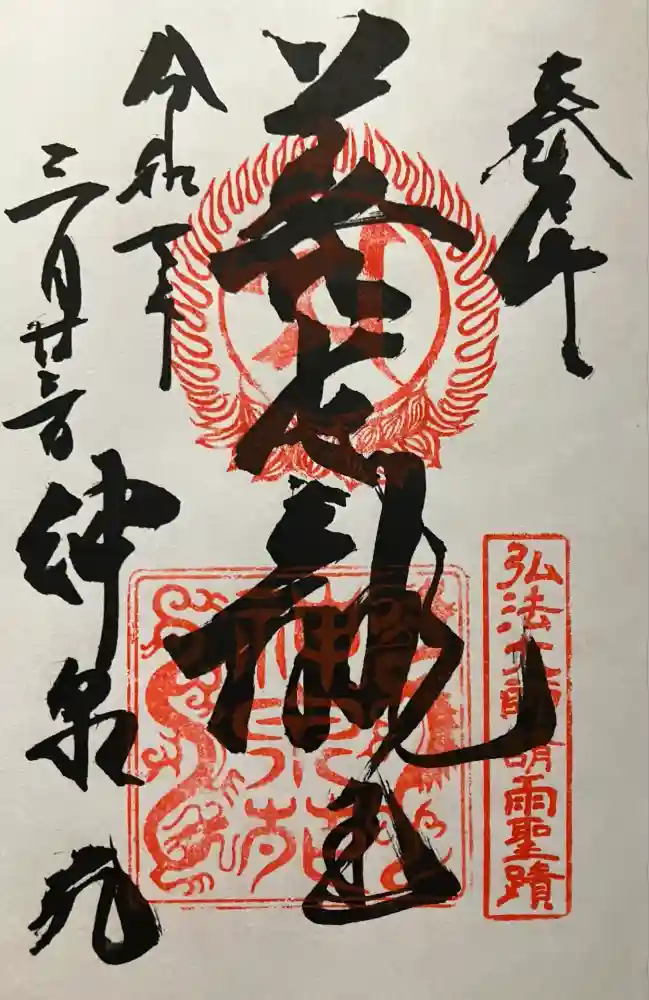 奉拝
弘法大師請雨聖蹟
善女龍王
令和 年
三月廿三日
神泉苑